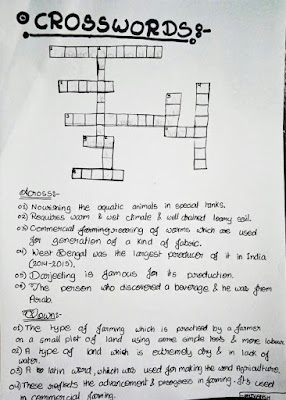 CROSSWORDS:-
Across:-
01) Nourishing the aquatic animals in special tanks.
02) Requires warm & wet climate & well drained loamy soil.
03) Commercial farming: rearing of worms which are used
for generation of a kind of fabric.
04) West Bengal was the largest producer of it in India
(2014-2015).
05) Darjeeling is famous for its production.
06) The person who discovered a beverage & he was from
Arab.
Down:-
01) The type of farming which is practised by a farmer
on a small plot of land using some simple tools & more labour.
02) A type of land which is extremely dry & in lack of
water.
03) A latin word, which was used for making the word Agriculture.
04) These reflects the advancement & progress in farming. It's used
in commercial farming.